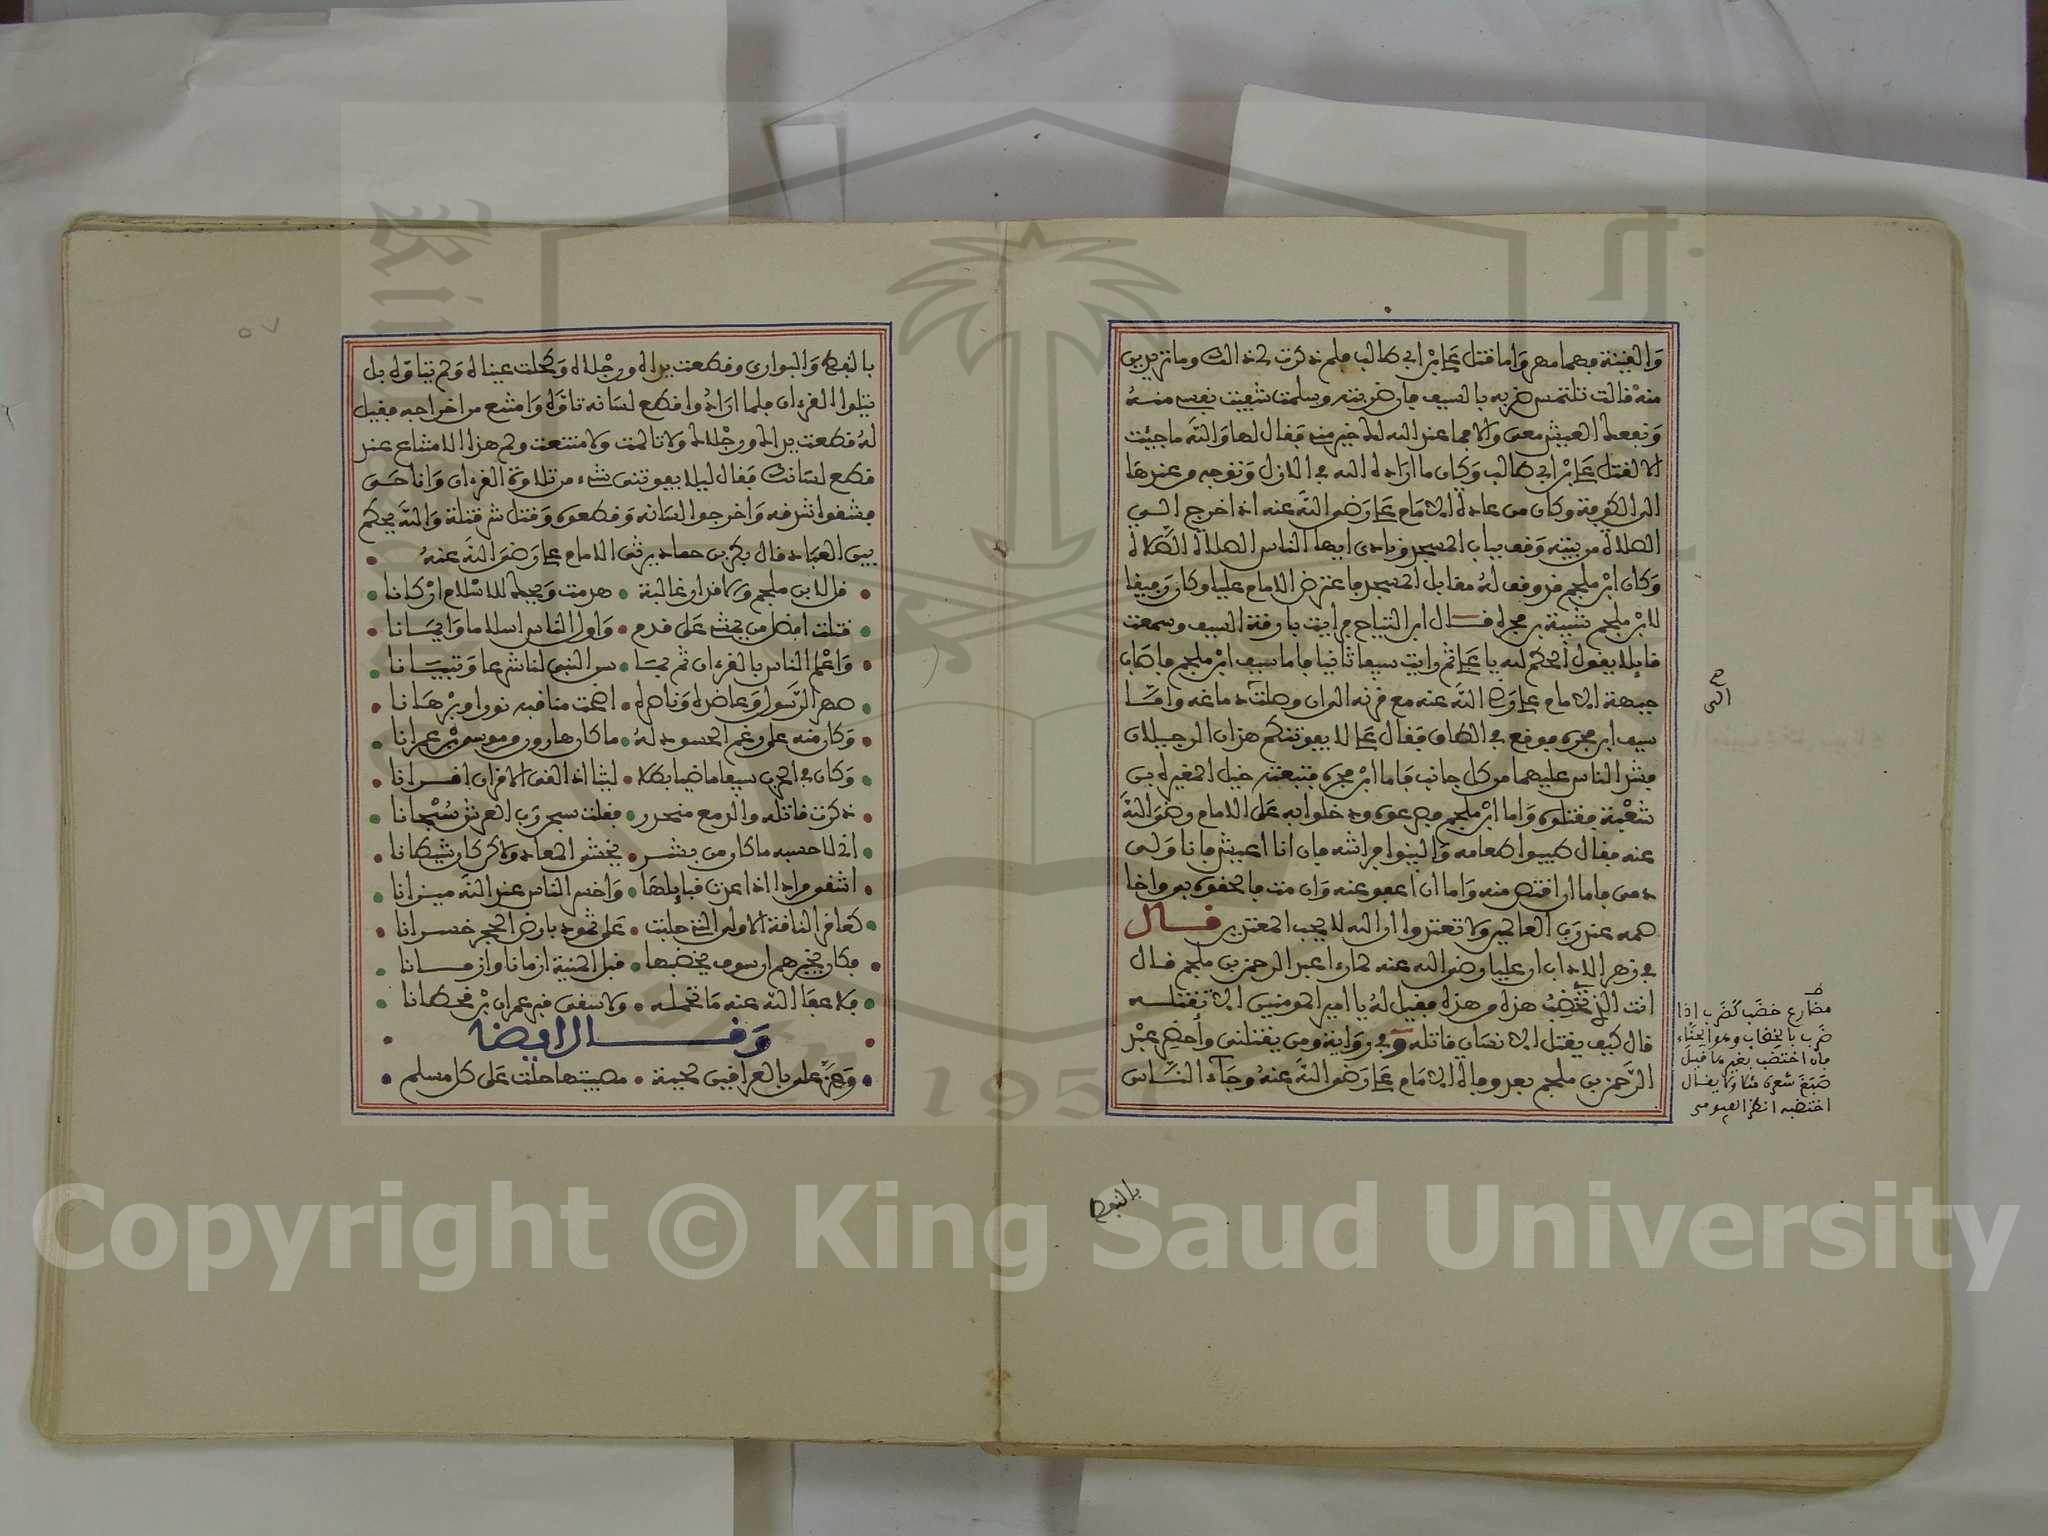 والقينة مهما مهر واما قتل علي بن ابي طالب فلم ذكرت لي ذالك وما تريدين
منه قالت تلتمس ضربه بالسيف فان ضربته وسلمت شفيت نفسي منه
ونفعك العيش معي والا فما عند الله لك خير منه فقال لها والله ما جيئت
الا لقتل علي بن ابي طالب وكان ما اراده الله في الازل وتوجه من عندها
الى الكوفة وكان من عادة الامام علي رضي الله عنه اذا خرج الى
الصلاة من بيته وقف بباب المسجد ونادى ايها الناس الصلاة الصلاة
وكان ابن ملجم قد وقف له مقابل المسجد فاعترض الامام عليا وكان رفيقا
لابن ملجم شبيبة بن بجرة قال ابن التياح فرايت بارقة السيف وسمعت
قايلا يقول الحكم لله يا علي ثم رايت سيفا ثانيا فاما سيف ابن ملجم فاصاب
جبهة الامام علي رضي الله عنه مع قرنه الى ان وصلت دماغه واما
سيف ابن بجرة فوقع في الطاق فقال علي لا يفوتنكم هذان الرجلان
فشد الناس عليهما من كل جانب فاما ابن بجرة فتبعته خيل المغيرة بن
شعبة فقتلوه واما ابن ملجم فصرعوه ودخلوا به على الامام رضي الله
عنه فقال طيبوا طعامه والينوا فراشه فان انا اعيش فانا ولي
دمي فاما ان اقتص منه واما ان اعفو عنه وان مت فالحقوه بي واخا
صمه عند رب العالمين ولا تعتدوا ان الله لا يحب المعتدين قال
في زهر الاداب ان عليا رضي الله عنه لما رءا عبد الرحمن بن ملجم قال
انت الذي تخضب هذه من هذه فقيل له يا امير المومنين الا تقتله
قال كيف يقتل الانسان قاتله وفي رواية ومن يقتلني واحضر عبد
الرحمن بن ملجم بعد وفاة الامام علي رضي الله عنه وجاء الناس
صح
الى
مضارع خضب كضرب اذا
ضرب بالخضاب وهو الحناء
فان اختضب بغير ما قيل
صبغ شعره ولا يقال
اختضبه انظر الفيومي
بالنفط
بالنفط والبواري وقطعت يداه ورجلاه وكحلت عيناه ولم يتاوه بل
يتلوا القرءان فلما ارادوا قطع لسانه تاوه وامتنع من اخراجه فقيل
له قطعت يداك ورجلاك ولا تالمت ولا متنعت ولم هذا الامتناع عند
قطع لسانك فقال ليلا يفوتني شيء من تلاوة القرءان وانا حي
فشقوا شدقه واخرجوا لسانه وقطعوه وقتل شر قتلة والله يحكم
بين العباد قال بكر بن حماد يرثي الامام علي رضي الله عنه
قل لابن ملجم والاقدار غالبة هدمت ويحك للاسلام اركانا
قتلت افضل من يمشي على قدم واول الناس اسلاما وايمانا
واعلم الناس بالقرءان ثم بما سن النبي لنا شرعا وتبيانا
صهر الرسول وعاضده وناصره اضحت مناقبه نورا وبرهانا
وكان منه على رغم الحسود له ما كان هارون من موسى بن عمرانا
وكان في الحرب سيفا ماضيا بطلا ليثا اذا لقى الاقران اقرانا
ذكرت قاتله والدمع منحدر فقلت سبحن رب العرش سبحانا
اني لاحسبه ما كان من بشر يخشى المعاد ولاكن كان شيطانا
اشقى مرادا اذا عدت قبايلها واخسر الناس عند الله ميزانا
كعاقر الناقة الاولى التي جلبت على ثمود بارض الحجر خسرانا
فكان يخبرهم ان سوف يخضبها قبل المنية ازمانا وازمانا
فلا عفا الله عنه ما تحمله ولا سقى قبر عمران بن حطانا
وقال ايضا
وهز علي بالعراقين لحيته مصيبتها حلت على كل مسلم
٥٧